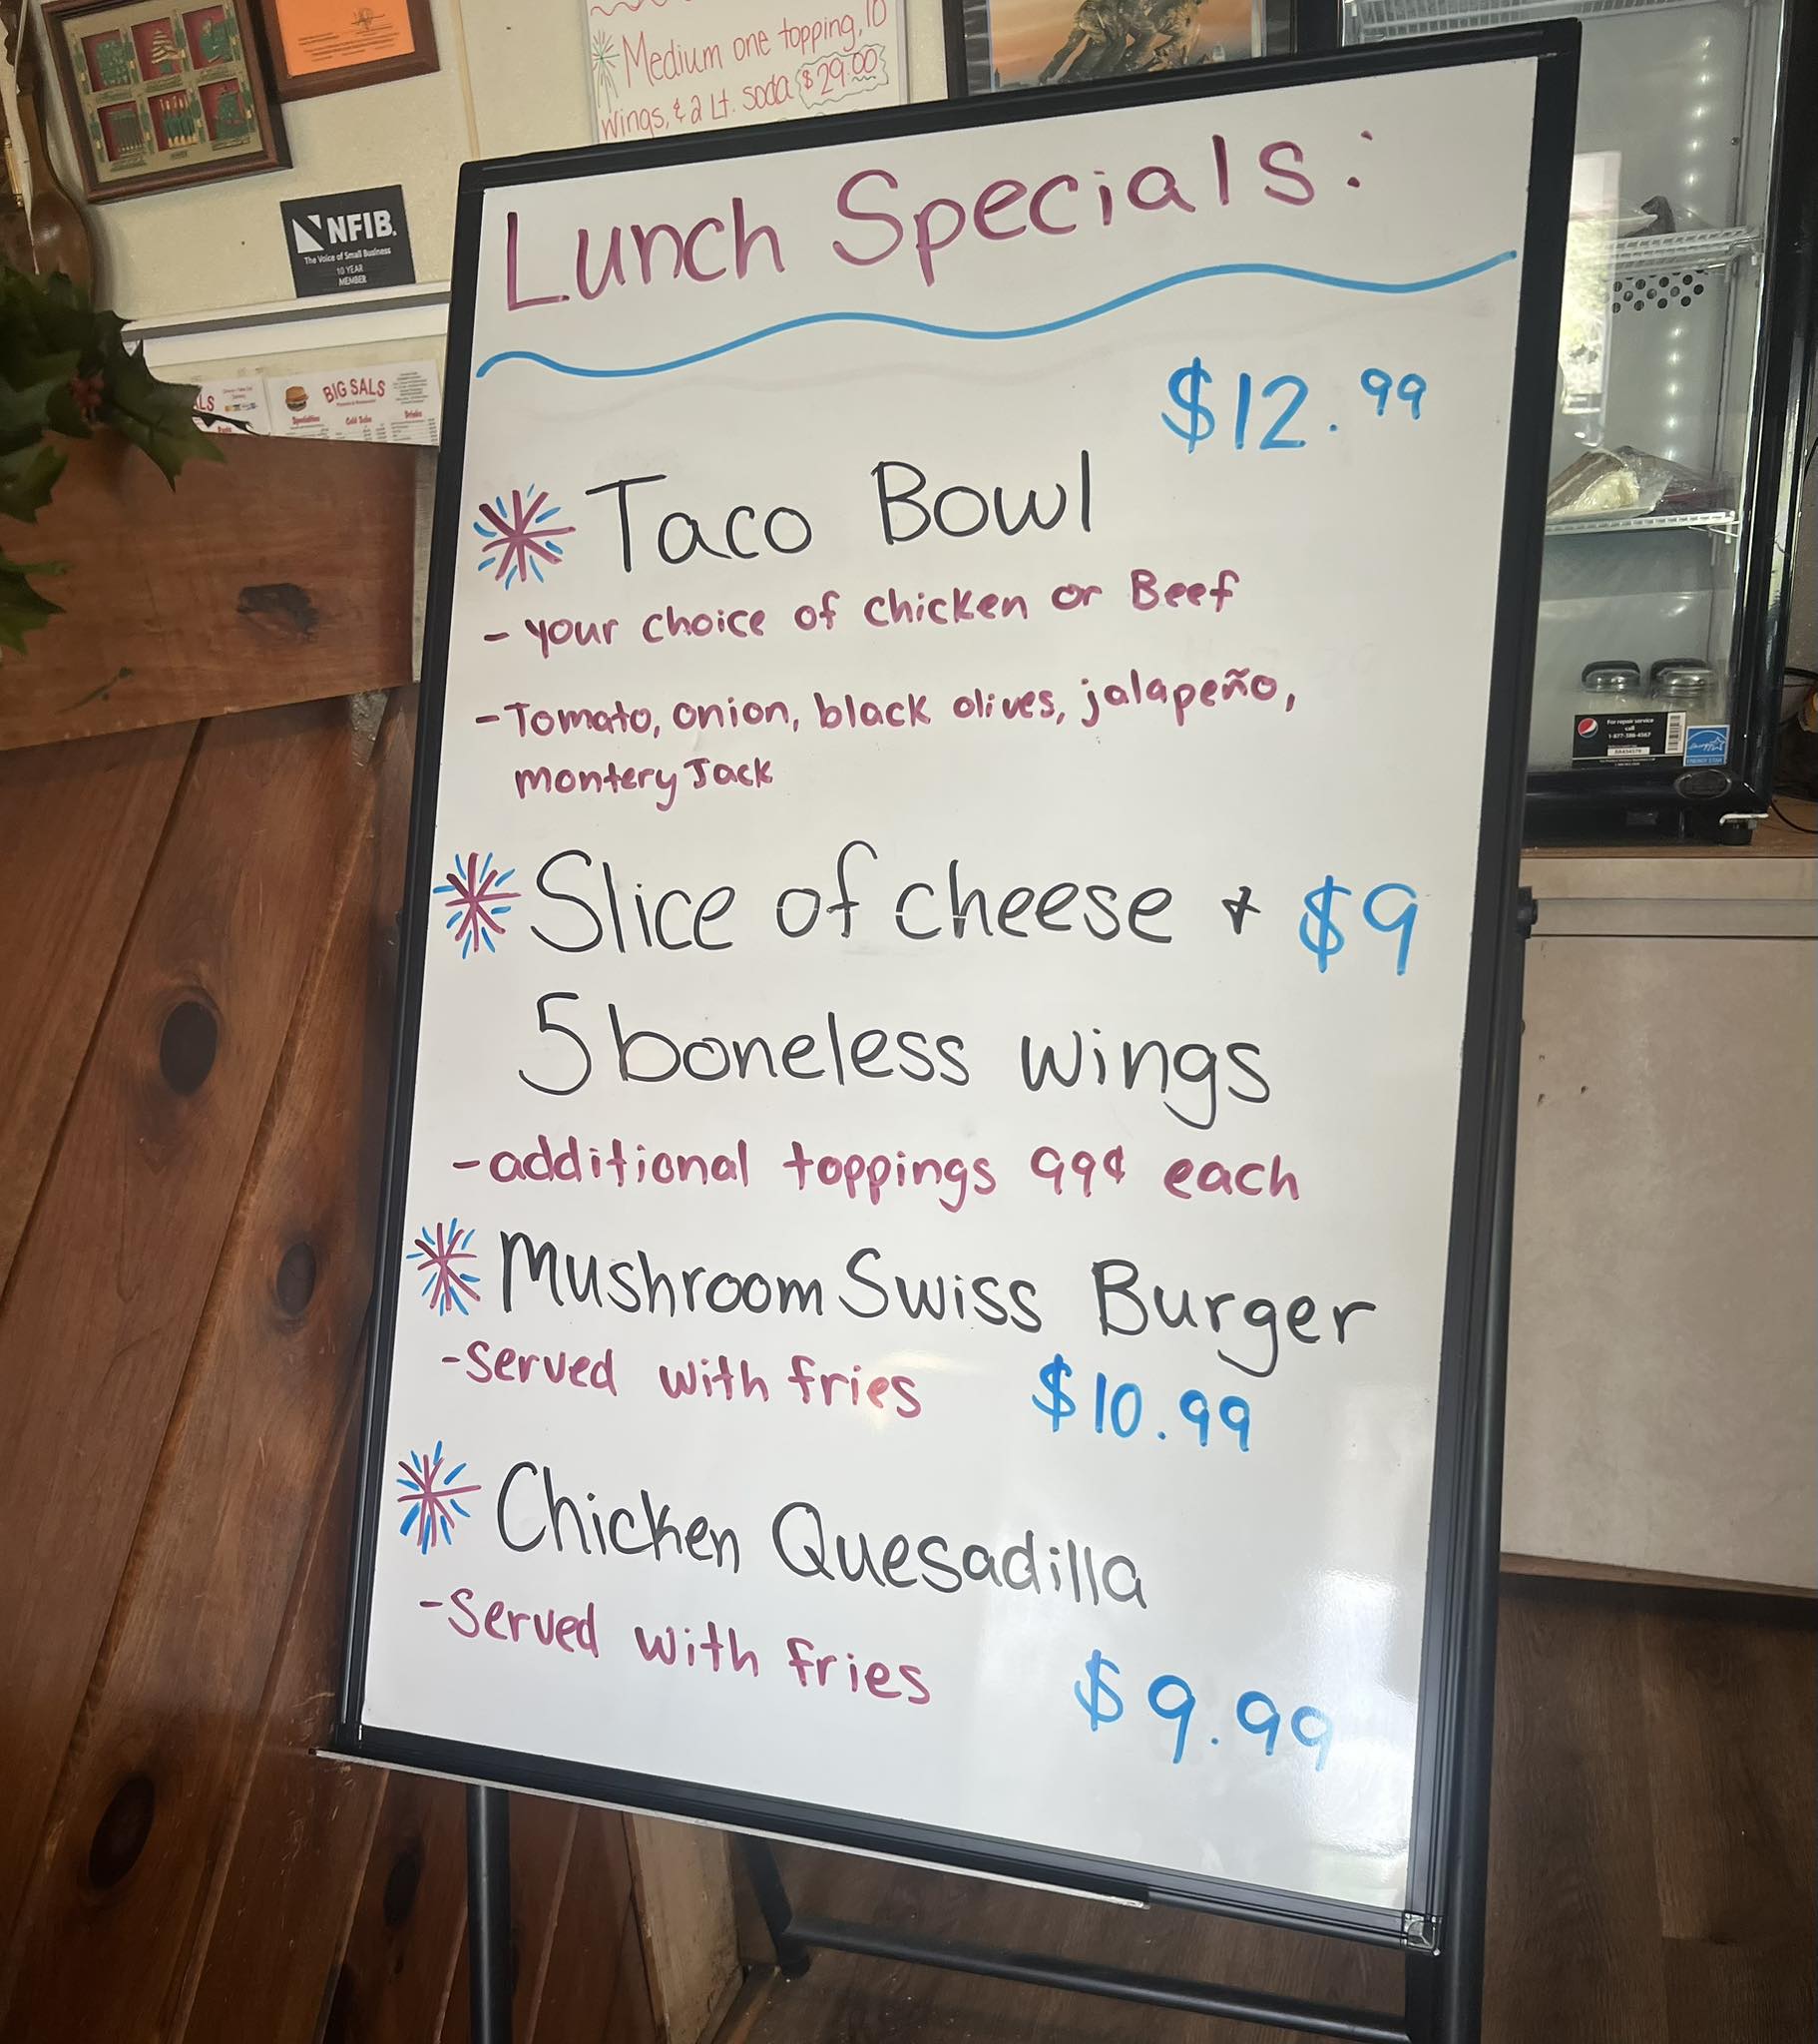 Medium one topping, 10
wings, & 2 Lt. soda $29.00
NFIB.
The Voice of Small Business
10 YEAR
MEMBER
BIG SALS
Specialties
Cold Subs
Drinks
LS
Lunch Specials:
$12.99
Taco Bowl
- your choice of chicken or Beef
- Tomato, onion, black olives, jalapeño,
montery Jack
Slice of cheese & $9
5 boneless wings
- additional toppings 99¢ each
Mushroom Swiss Burger
- Served with fries $10.99
Chicken Quesadilla
- Served with fries
$9.99
For repair service
call
1-877-386-4567
ENERGY STAR